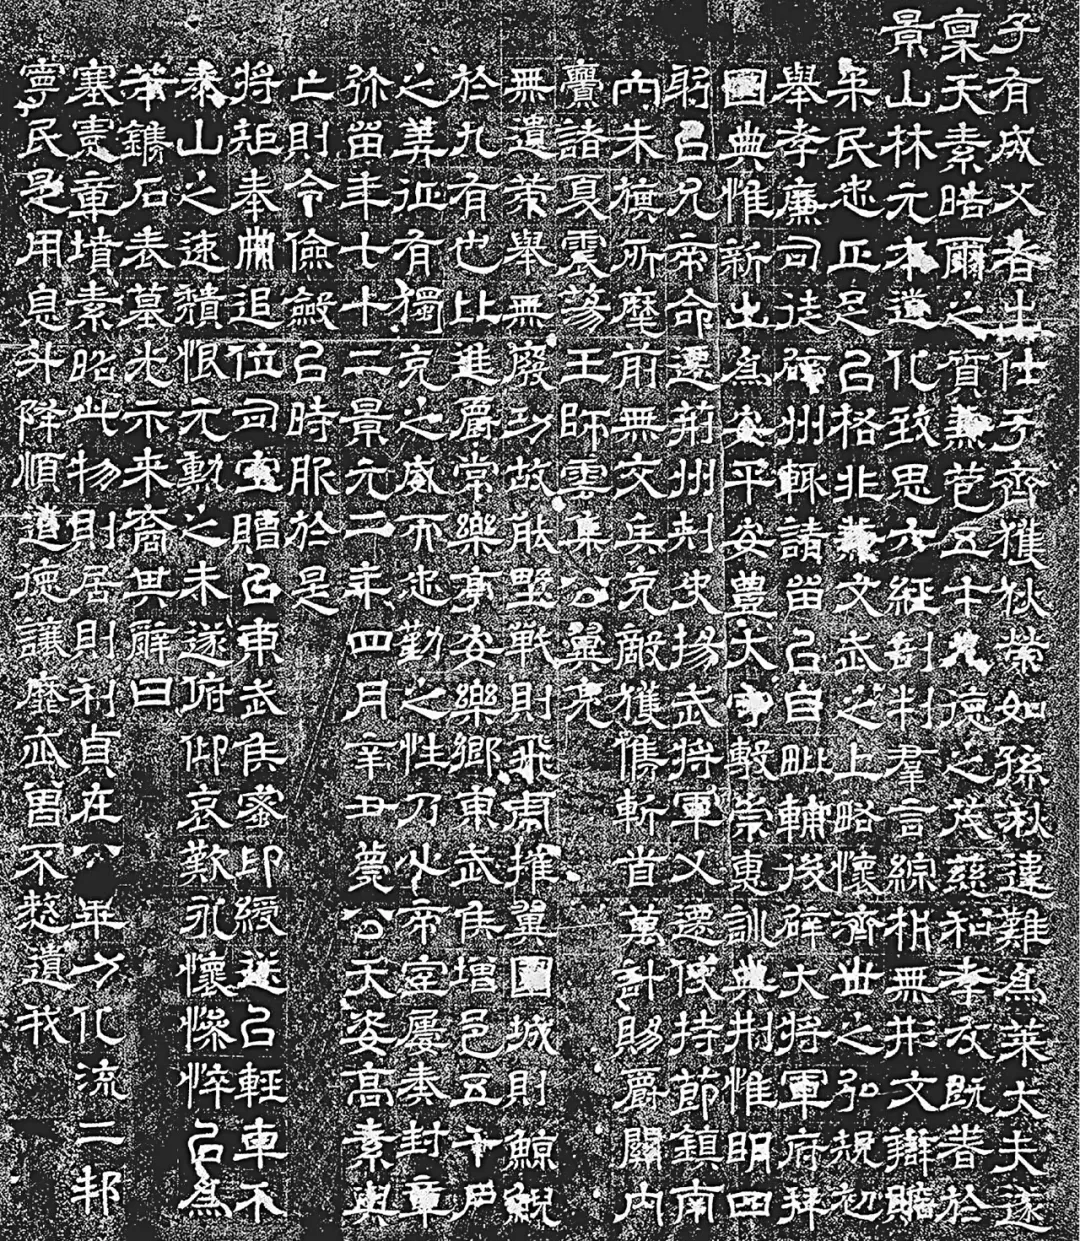 子有成父者出仕于齊獲狄榮如孫湫違難爲萊大夫遂
稟天素皓爾之質兼苞五才九德之茂慈和孝友既著於
景山林元本道化致思六經剖判羣言綜析無形文辯贍
來民忠正足以格非兼文武之上略懷濟世之弘規初
舉孝廉司徒辟州輒請留以自毗輔後辟大將軍府拜
國典惟新出爲安平安豊大守敷崇惠訓典刑惟明四
躬以允帝命遷荊州刺史揚武將軍又遷使持節鎮南
內朱旗所麾前無交兵克敵獲儁斬首萬計賜爵關內
釁諸夏震蕩王師雲集公翼亮
無遺策舉無廢功故能野戰則飛虜摧翼圍城則鯨鯢
於九有也比進爵常樂亭安樂鄉東武侯增邑五千戶
之美征有獨克之威而忠勤之性乃心帝室屢奏封章
弥留年七十二景元二年四月辛丑薨公天姿高素與
亡則令儉斂以時服於是
將矩奉冊追位司空贈以東武侯蜜印綬送以輕車不
泰山之速頹恨元勳之未遂俯仰哀歎永懷慘悴以爲
策鐫石表墓光示來裔其辭曰
塞憲章墳素昭此物則居則利貞在公畢力化流二邦
寧民是用息升降順道德讓靡忒曾不憖遺我